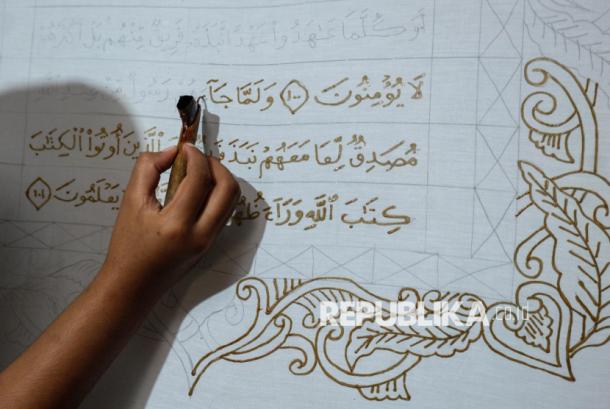 أَوَكُلَّمَا عَٰهَدُوا۟ عَهْدًا نَّبَذَهُۥ فَرِيقٌ مِّنْهُم بَلْ أَكْثَرُهُمْ
لَا يُؤْمِنُونَ ١٠٠ وَلَمَّا جَآءَ رَسُولٌ مِّنْ عِندِ ٱللَّهِ
مُصَدِّقٌ لِّمَا مَعَهُمْ نَبَذَ ٱلَّذِينَ أُوتُوا۟ ٱلْكِتَٰبَ
كِتَٰبَ ٱللَّهِ وَرَآءَ يَعْلَمُونَ ١٠١
REPUBLIKA.co.id